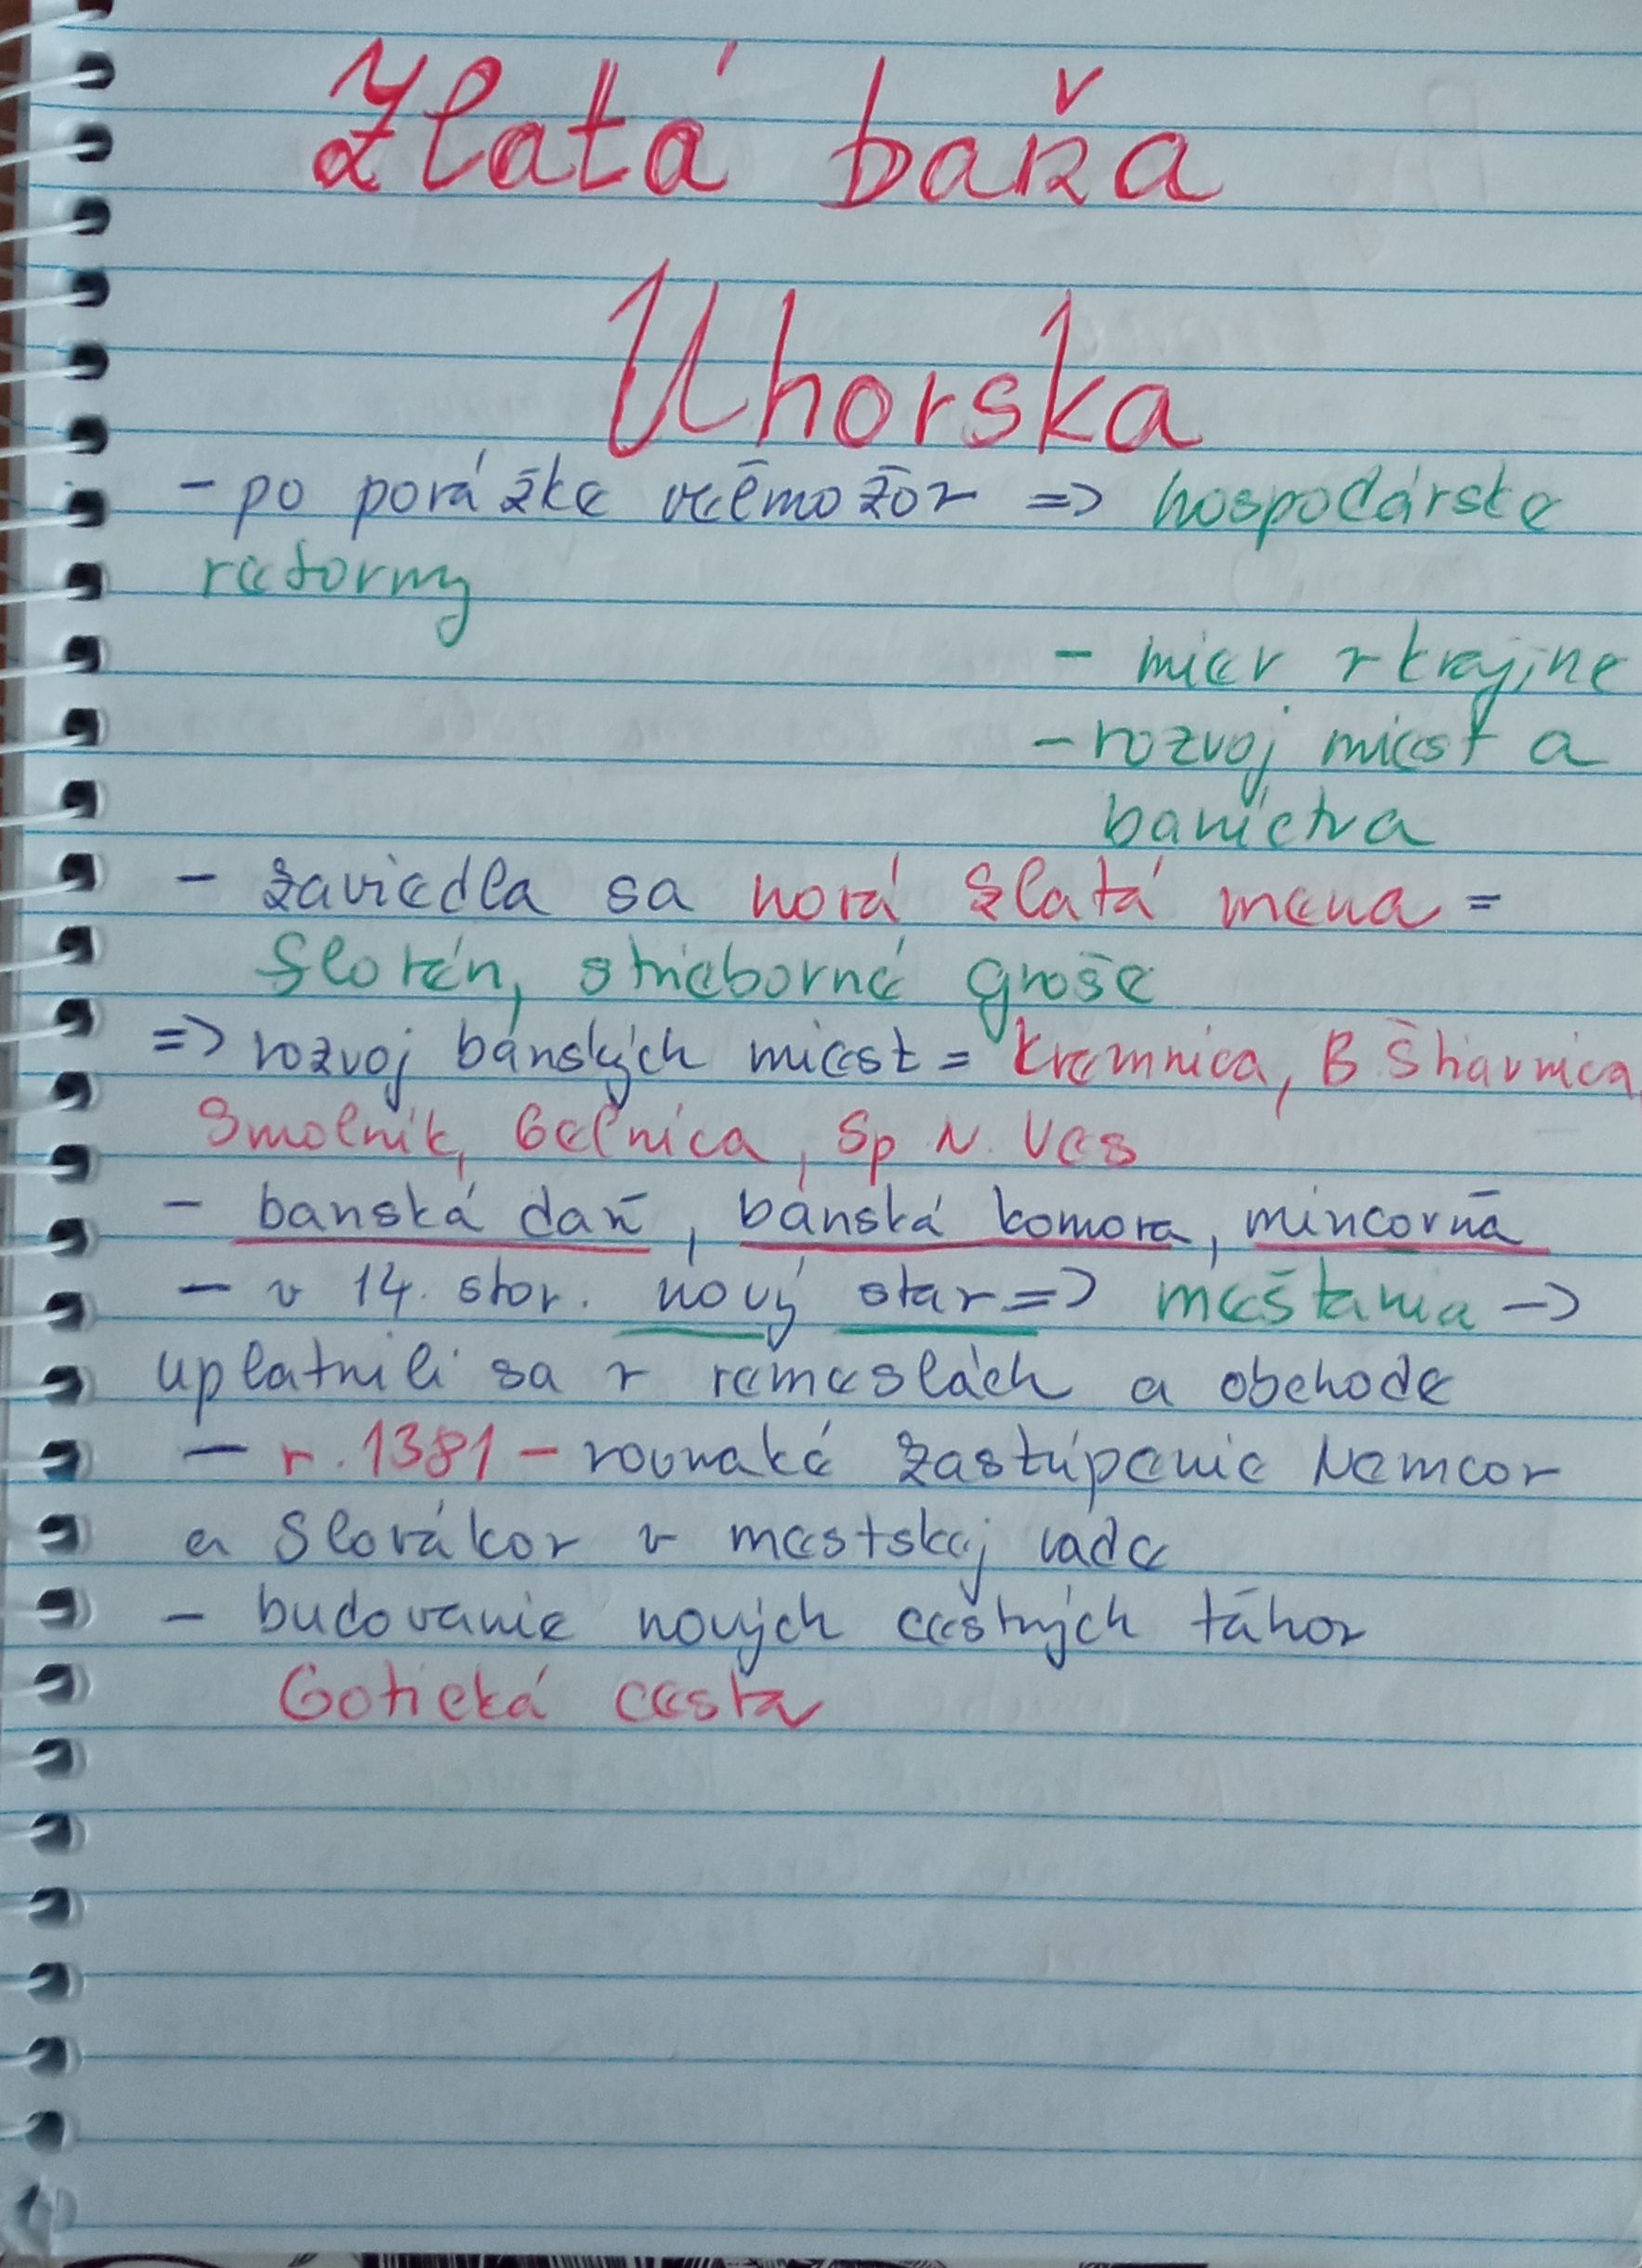 Zlatá baňa
Uhorska
- po porážke veľmožov => hospodárske
reformy
- mier v krajine
- rozvoj miest a
baníctva
- zaviedla sa nová zlatá mena =
florén, strieborné groše
=> rozvoj bánskych miest = Kremnica, B. Štiavnica,
Smolník, Gelnica, Sp N. Ves
- banská daň, bánská komora, mincovňa
- v 14. stor. nový stav => mešťania ->
uplatnili sa v remeslách a obchode
- r. 1381 - rovnaké zastúpenie Nemcov
a Slovákov v mestskej rade
- budovanie nových cestných ťahov
Gotická cesta